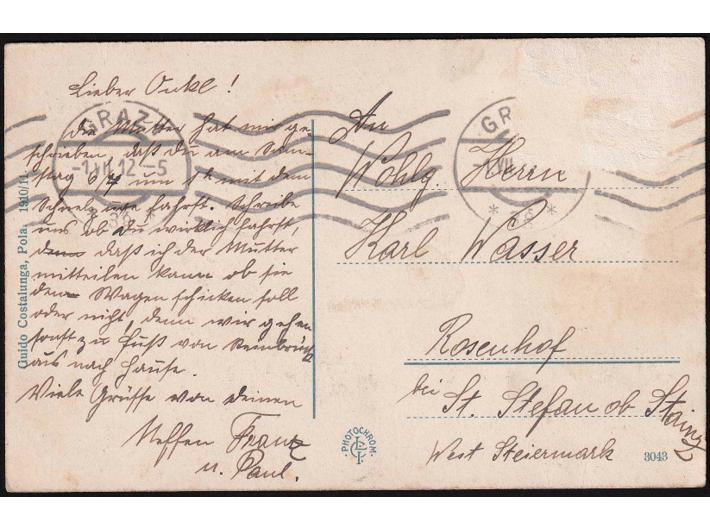 Lieber Onkl!
Die Mutter hat mir ge-
schrieben, daß du am Sams-
tag 6/7 um 1h mit dem
Schnellzuge fahrst. Schreibe
uns ob du wirklich fahrst,
daß ich der Mutter
mitteilen kann ob sie
den Wagen schicken soll
oder nicht, denn wir gehen
sonst zu Fuß von
aus nach Hause.
Viele Grüsse von deinen
Neffen Franz
u. Paul.
GRAZ
-1.VII.12-5
GR
-1.VII
An
Wohlg. Herrn
Karl Wasser
Rosenhof
bei St. Stefan ob Stainz
West Steiermark
Guido Costalunga, Pola, 1910/11.
PHOTOCHROM.
3043